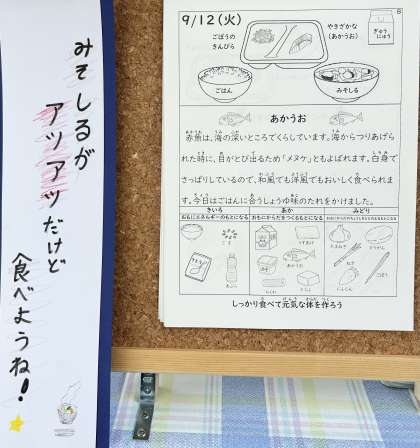 みそしるが
アツアツだけど
食べようね！
9/12(火)
ごぼうの
きんぴら
やきざかな
(あかうお)
ぎゅう
にゅう
ごはん
みそしる
あかうお
赤魚は、海の深いところでくらしています。海からつりあげら
れた時に、目がとび出るため「メヌケ」ともよばれます。白身で
さっぱりしているので、和風でも洋風でもおいしく食べられま
す。今日はごはんに合うしょうゆ味のたれをかけました。
きいろ
あか
みどり
おもにエネルギーのもとになる
おもにからだをつくるもとになる
おもにからだのちょうしをととのえるもとになる
ごま
あぶら
あかうお
とうふ
たまねぎ
ねぎ
にんじん
ごぼう
しっかり食べて元気な体を作ろう